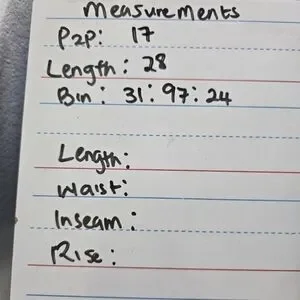 Measurements
P2P: 17
Length: 28
Bin: 31:97:24
Length:
Waist:
Inseam:
Rise: